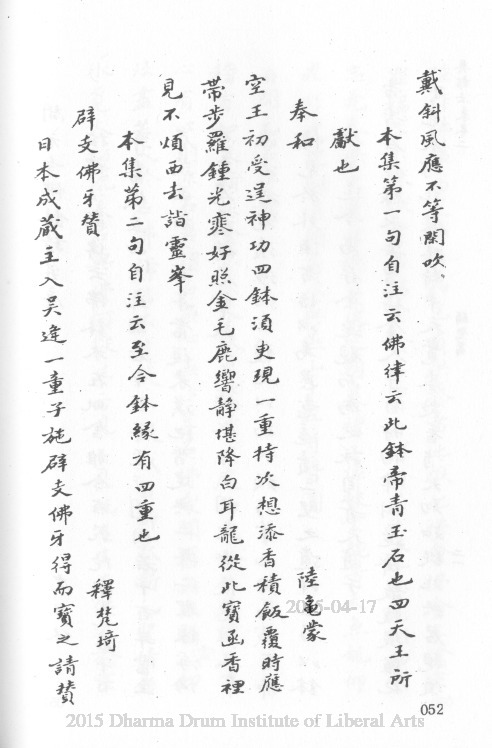 戴斜風應不等閑吹、
本集第一句自注云佛律云此鉢帝青玉石也四天王所
獻也
奉和　　　　　　　　陸龜蒙
空王初受逞神功四鉢須臾現一重持次想添香積飯覆時應
帶步羅鍾光寒好照金毛鹿響静堪降白耳龍從此寶函香裡
見不煩西去詣靈峯
本集第二句自注云至今鉢緣有四重也
辟支佛牙贊　　　　　　釋梵琦
日本成藏主入吳逢一童子施辟支佛牙得而寶之請贊
2015-04-17
052
2015 Dharma Drum Institute of Liberal Arts